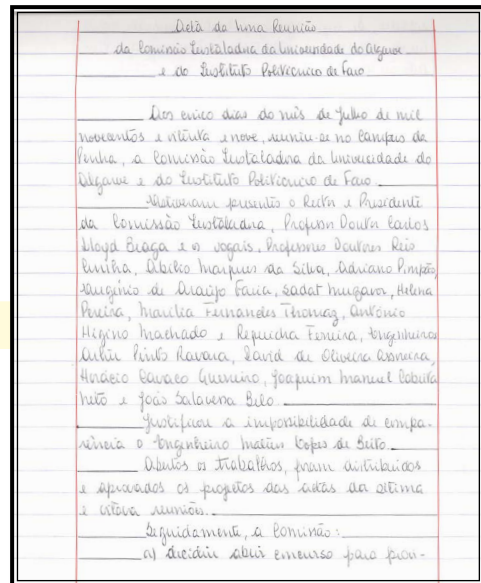 Acta da nona Reunião
da Comissão Instaladora da Universidade do Algarve
e do Instituto Politécnico de Faro
Aos cinco dias do mês de Julho de mil
novecentos e oitenta e nove, reuniu-se no Campus da
Penha, a Comissão Instaladora da Universidade do
Algarve e do Instituto Politécnico de Faro.
Estiveram presentes o Reitor e Presidente
da Comissão Instaladora, Professor Doutor Carlos
Lloyd Braga e os vogais, Professores Doutores Reis
Cunha, Abílio Marques da Silva, Adriano Pimpão,
Eugénio de Araújo Faria, Sadat Muzavor, Helena
Pereira, Marília Fernandes Thomaz, António
Higino Machado e Repuicha Ferreira, Engenheiros
Pinto Ravara, David de Oliveira
Horácio Cavaco Guerreiro, Joaquim Manuel Cabrita
Neto e João Salavessa Belo.
Justificou a impossibilidade de compa-
rência o Engenheiro Matias Lopes de Brito.
Abertos os trabalhos, foram distribuídos
e aprovados os projetos das actas da sétima
e oitava reuniões.
Seguidamente, a Comissão:
a) decidiu abrir concurso para provi-